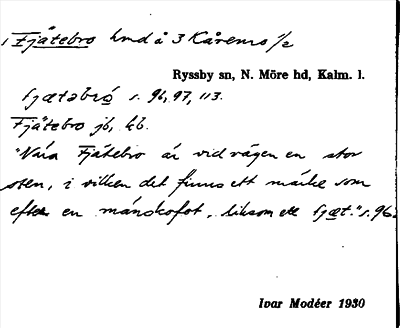 1 Fjätebro hmd å 3 Kårems 1/2
Ryssby sn, N. Möre hd, Kalm. l.
fjætəbró s. 96, 97, 113.
Fjätebro jb, kb.
"Nära Fjätebro är vid vägen en stor
sten, i vilken det finns ett märke som
efter en mänskofot, liksom ett fjæt." s. 96.
Ivar Modéer 1930